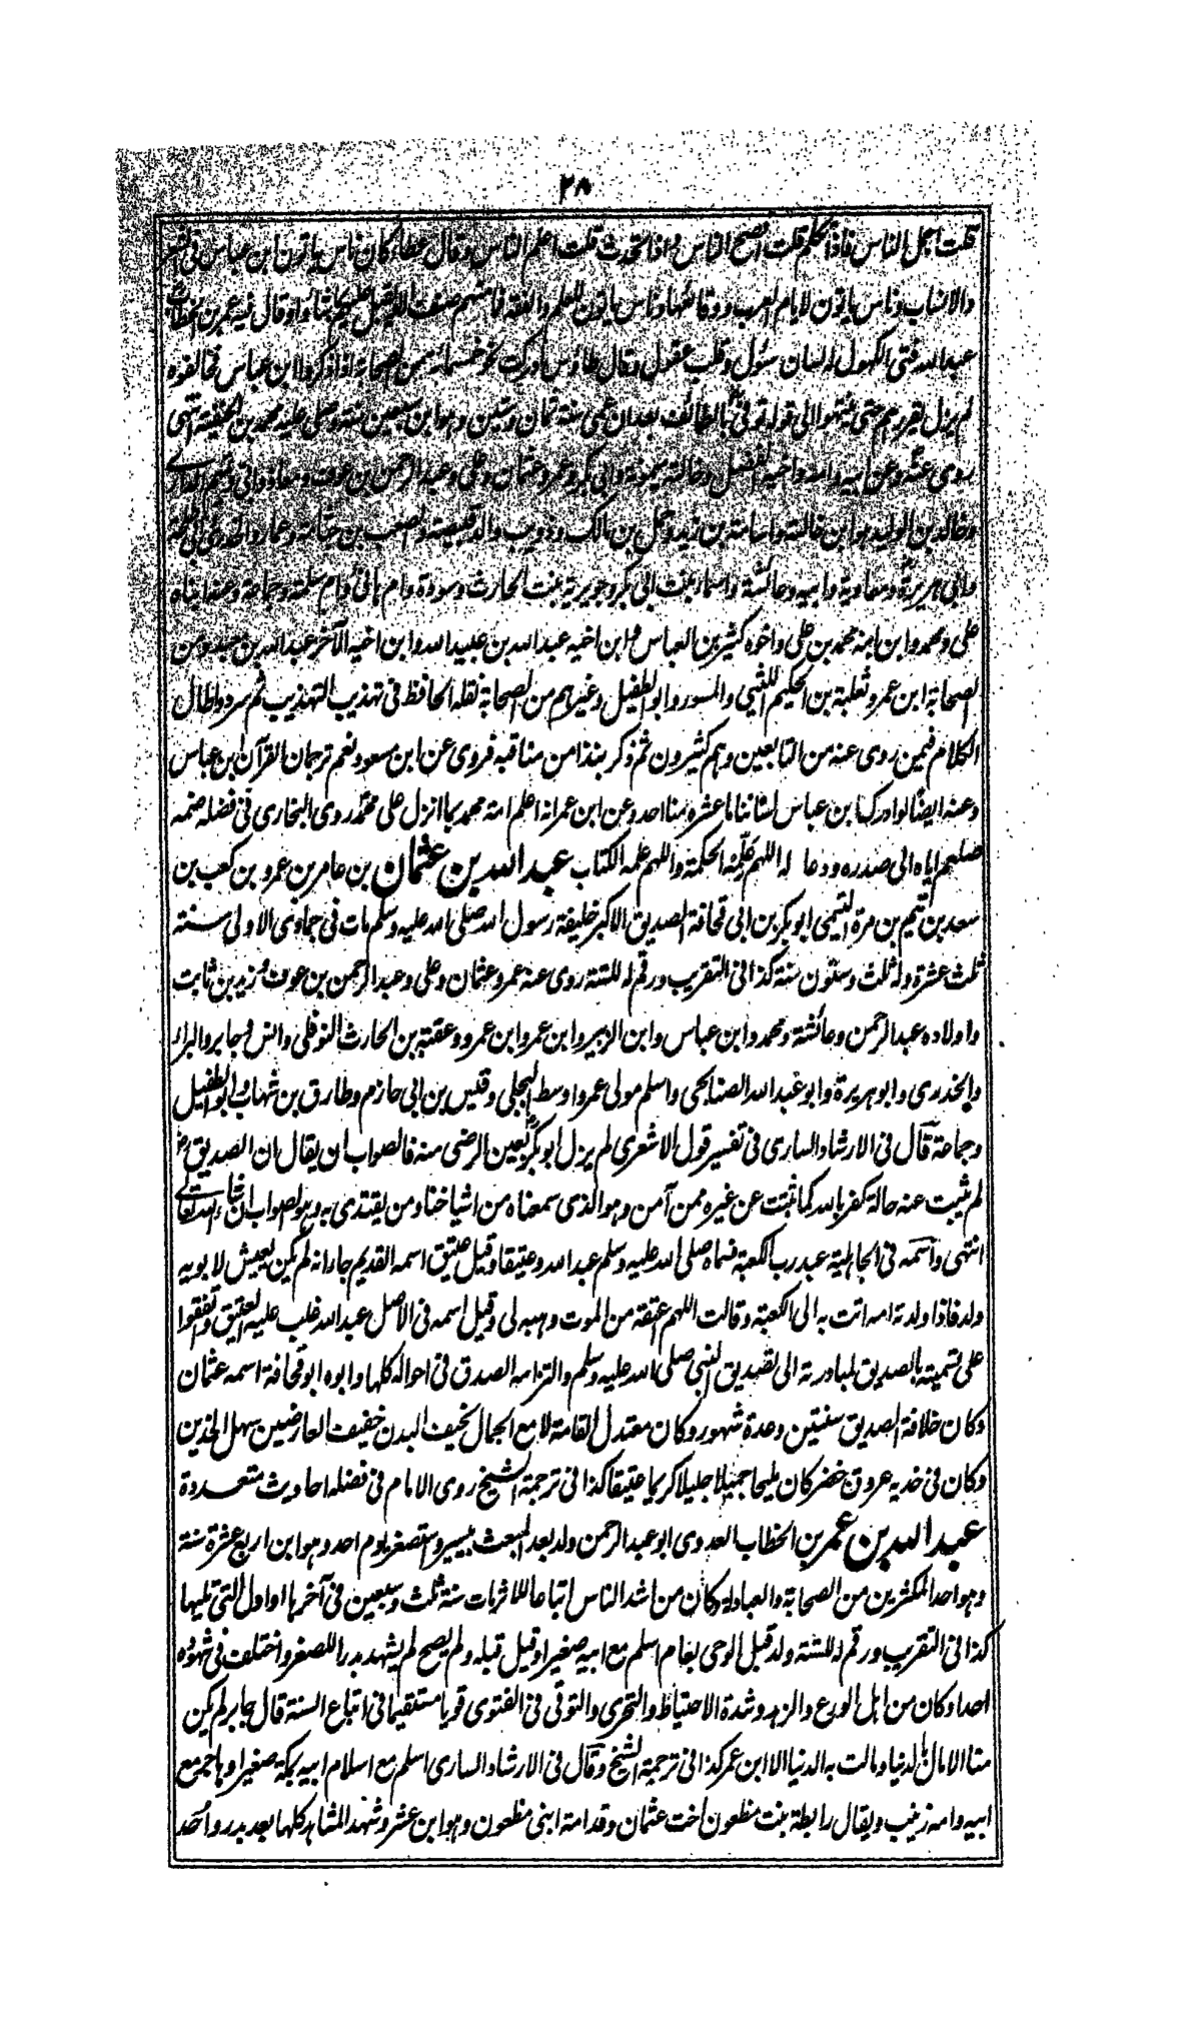 ٢٨
قلت اجمل الناس فاذا تكلم قلت افصح الناس واذا تحدث قلت اعلم الناس وقال عطاء كان ناس ياتون ابن عباس فى الشعر
والانساب وناس ياتون لايام العرب ووقائعها وناس ياتون للعلم والفقه فما منهم صنف الا يقبل عليهم بما شاؤا وقال فيه عمر بن الخطاب
عبد الله فتى الكهول له لسان سئول وقلب عقول وقال طاؤس ادركت نحو خمسمائة من الصحابة اذا ذكروا ابن عباس فخالفوه
لم يزل يقررهم حتى ينتهوا الى قوله توفى بالطائف بعد ان عمى سنة ثمان وستين وهو ابن سبعين سنة وصلى عليه محمد بن الحنفية انتهى
روى عنه وعن ابيه وامه واخيه الفضل وخالته ميمونة وابى بكر وعمر وعثمان وعلى وعبد الرحمن بن عوف ومعاذ وابى ذر وتميم الدارى
وخالد بن الوليد وهو ابن خالته واسامة بن زيد وحمل بن مالك وذويب والد قبيصة والصعب بن جثامة وعمار والخدرى وابى طلحة
وابى هريرة ومعاوية وابيه وعائشة واسماء بنت ابى بكر وجويرية بنت الحارث وسودة وام هانى وام سلمة وجماعة وعنه ابناه
على ومحمد وابن ابنه محمد بن على واخوه كثير بن العباس وابن اخيه عبد الله بن عبيد الله وابن اخيه الآخر عبد الله بن معبد ومن
الصحابة ابن عمر وثعلبة بن الحكيم الليثى والمسور وابو الطفيل وغيرهم من الصحابة نقله الحافظ فى تهذيب التهذيب ثم سرد واطال
الكلام فيمن روى عنه من التابعين وهم كثيرون ثم ذكر بنذا من مناقبه فروى عن ابن مسعود نعم ترجمان القرآن ابن عباس
وعنه ايضا لو ادرك ابن عباس اسناننا ما عشره منا احد وعن ابن عمر انه اعلم امة محمد بما انزل على محمد روى البخارى فى فضله ضمه
صلعم اياه الى صدره ودعا له اللهم علمه الحكمة واللهم علمه الكتاب عبد الله بن عثمان بن عامر بن عمرو بن كعب بن
سعد بن تيم بن مرة التيمى ابو بكر بن ابى قحافة الصديق الاكبر خليفة رسول الله صلى الله عليه وسلم مات فى جمادى الاولى سنة
ثلث عشرة وله ثلث وستون سنة كذا فى التقريب ورقم له للستة روى عنه عمر وعثمان وعلى وعبد الرحمن بن عوف وزيد بن ثابت
واولاده عبد الرحمن وعائشة ومحمد وابن عباس وابن الزبير وابن عمر وابن عمرو وعقبة بن الحارث النوفلى وانس وجابر والبراء
والخدرى وابو هريرة وابو عبد الله الصنابحى واسلم مولى عمر واوسط البجلى وقيس بن ابى حازم وطارق بن شهاب وابو الطفيل
وجماعة قال فى الارشاد السارى فى تفسير قول الاشعرى لم يزل ابو بكر بعين الرضى منه فالصواب ان يقال ان الصديق رض
لم يثبت عنه حالة كفر بالله كما ثبتت عن غيره ممن آمن وهو الذى سمعناه من اشياخنا ومن يقتدى به وهو الصواب ان شاء الله تعالى
انتهى واسمه فى الجاهلية عبد رب الكعبة فسماه صلى الله عليه وسلم عبد الله وعتيقا وقيل عتيق اسمه القديم جاء انه لم يكن يعيش لابويه
ولد فاذا ولدته امه اتت به الى الكعبة وقالت اللهم اعتقه من الموت وهبه لى وقيل اسمه فى الاصل عبد الله غلب عليه العتيق واتفقوا
على تسميته بالصديق لمبادرته الى تصديق النبى صلى الله عليه وسلم والتزامه الصدق فى احواله كلها وابوه ابو قحافة اسمه عثمان
وكان خلافة الصديق سنتين وعدة شهور وكان معتدل القامة لامع الجمال نحيف البدن خفيف العارضين سهل الخذين
وكان فى خديه عروق خضر كان مليحا جميلا جليلا كريما عتيقا كذا فى ترجمة الشيخ روى الامام فى فضله احاديث متعددة
عبد الله بن عمر بن الخطاب العدوى ابو عبد الرحمن ولد بعد المبعث بيسير واستصغر يوم احد وهو ابن اربع عشرة سنة
وهو احد المكثرين من الصحابة والعبادلة وكان من اشد الناس اتباعا للاثر مات سنة ثلث وسبعين فى آخرها او اول التى تليها
كذا فى التقريب ورقم له للستة ولد قبل الوحى بعام اسلم مع ابيه صغيرا وقيل قبله ولم يصح لم يشهد بدرا للصغر واختلف فى شهوده
احدا وكان من اهل الورع والزهد وشدة الاحتياط والتحرى والتوقى فى الفتوى قويا مستقيما فى اتباع السنة قال جابر لم يكن
منا الا مال بالدنيا ومالت به الدنيا الا ابن عمر كذا فى ترجمة الشيخ وقال فى الارشاد السارى اسلم مع اسلام ابيه بمكة صغيرا وهاجر مع
ابيه وامه زينب ويقال رابطة بنت مظعون اخت عثمان وقدامة ابنى مظعون وهو ابن عشر وشهد المشاهد كلها بعد بدر واحد